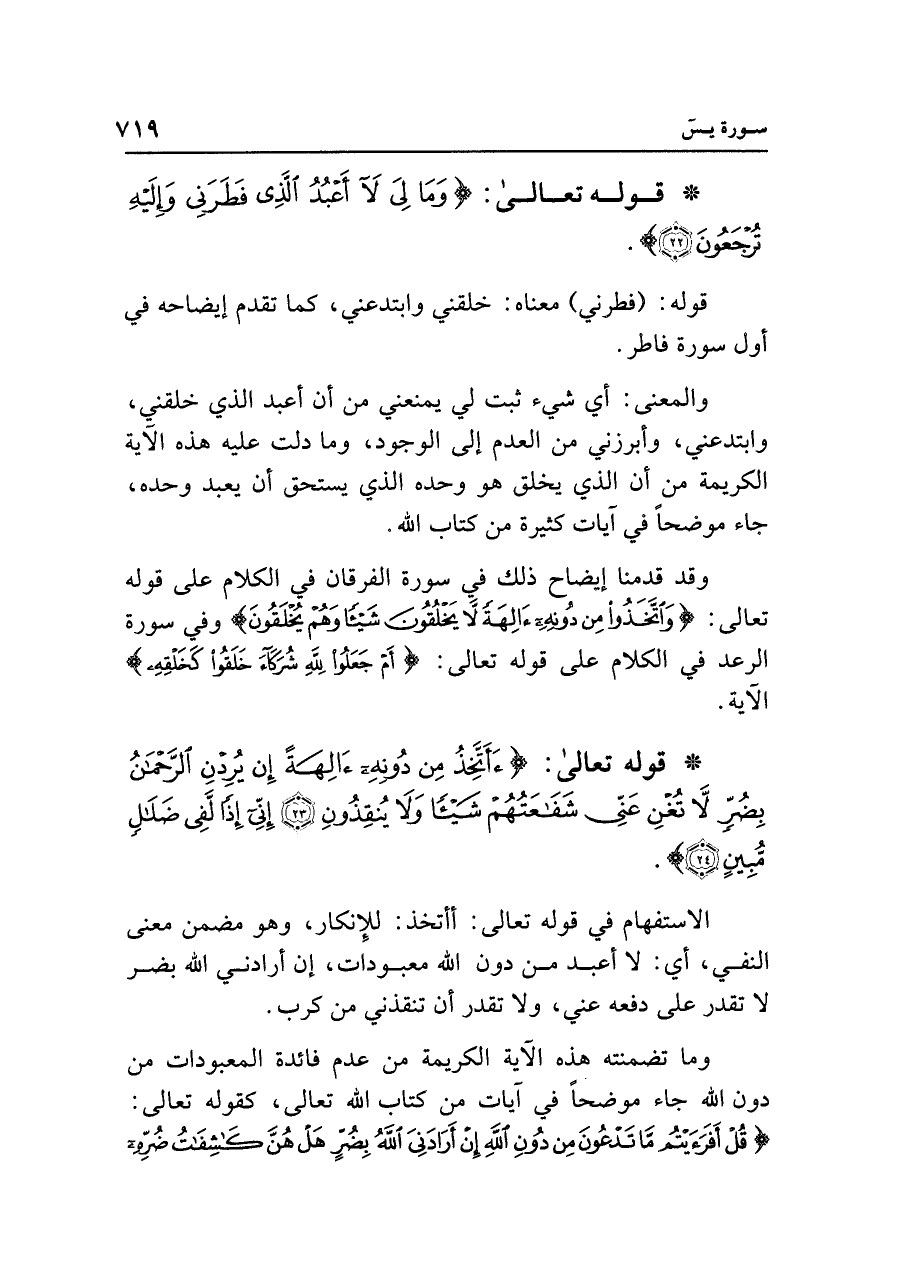 سورة يسٓ ٧١٩
* قوله تعالىٰ: ﴿ وَمَا لِىَ لَآ أَعْبُدُ ٱلَّذِى فَطَرَنِى وَإِلَيْهِ
تُرْجَعُونَ ٢٢ ﴾ .
قوله: (فطرني) معناه: خلقني وابتدعني، كما تقدم إيضاحه في
أول سورة فاطر .
والمعنى: أي شيء ثبت لي يمنعني من أن أعبد الذي خلقني،
وابتدعني، وأبرزني من العدم إلى الوجود، وما دلت عليه هذه الآية
الكريمة من أن الذي يخلق هو وحده الذي يستحق أن يعبد وحده،
جاء موضحاً في آيات كثيرة من كتاب الله.
وقد قدمنا إيضاح ذلك في سورة الفرقان في الكلام على قوله
تعالى: ﴿ وَٱتَّخَذُوا۟ مِن دُونِهِۦٓ ءَالِهَةً لَّا يَخْلُقُونَ شَيْـًٔا وَهُمْ يُخْلَقُونَ﴾ وفي سورة
الرعد في الكلام على قوله تعالى: ﴿ أَمْ جَعَلُوا۟ لِلَّهِ شُرَكَآءَ خَلَقُوا۟ كَخَلْقِهِۦ ﴾
الآية.
* قوله تعالىٰ: ﴿ ءَأَتَّخِذُ مِن دُونِهِۦٓ ءَالِهَةً إِن يُرِدْنِ ٱلرَّحْمَـٰنُ
بِضُرٍّ لَّا تُغْنِ عَنِّى شَفَـٰعَتُهُمْ شَيْـًٔا وَلَا يُنقِذُونِ ٢٣ إِنِّىٓ إِذًا لَّفِى ضَلَـٰلٍ
مُّبِينٍ ٢٤ ﴾ .
الاستفهام في قوله تعالى: أأتخذ: للإنكار، وهو مضمن معنى
النفي، أي: لا أعبد من دون الله معبودات، إن أرادني الله بضر
لا تقدر على دفعه عني، ولا تقدر أن تنقذني من كرب.
وما تضمنته هذه الآية الكريمة من عدم فائدة المعبودات من
دون الله جاء موضحاً في آيات من كتاب الله تعالى، كقوله تعالى:
﴿ قُلْ أَفَرَءَيْتُم مَّا تَدْعُونَ مِن دُونِ ٱللَّهِ إِنْ أَرَادَنِىَ ٱللَّهُ بِضُرٍّ هَلْ هُنَّ كَـٰشِفَـٰتُ ضُرِّهِۦٓ